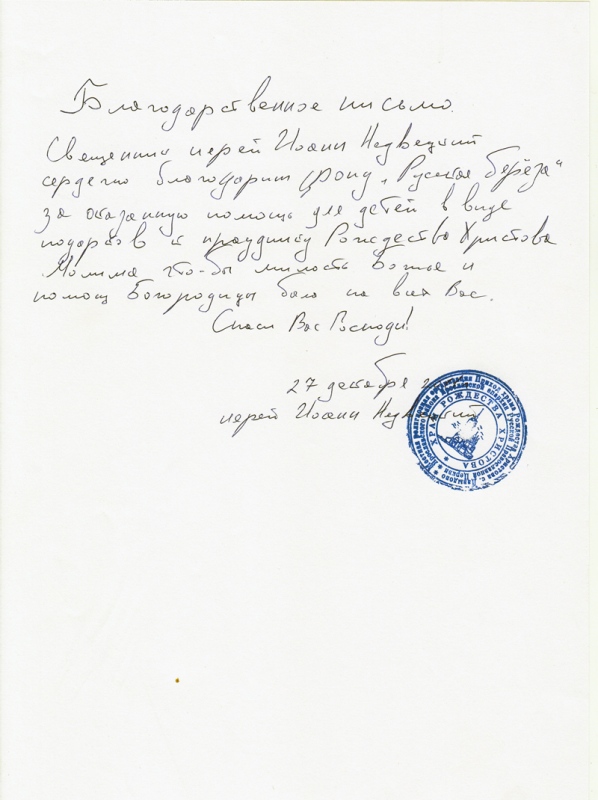 Благодарственное письмо.
Священник иерей Иоанн Недвецкий
сердечно благодарит фонд „Русская берёза“
за оказанную помощь для детей в виде
подарков к празднику Рождества Христова
Молимся что-бы милость Божья и
помощь Богородицы была на всех Вас.
Спаси Вас Господи!
27 декабря
иерей Иоанн Недвецкий
ХРАМ РОЖДЕСТВА ХРИСТОВА